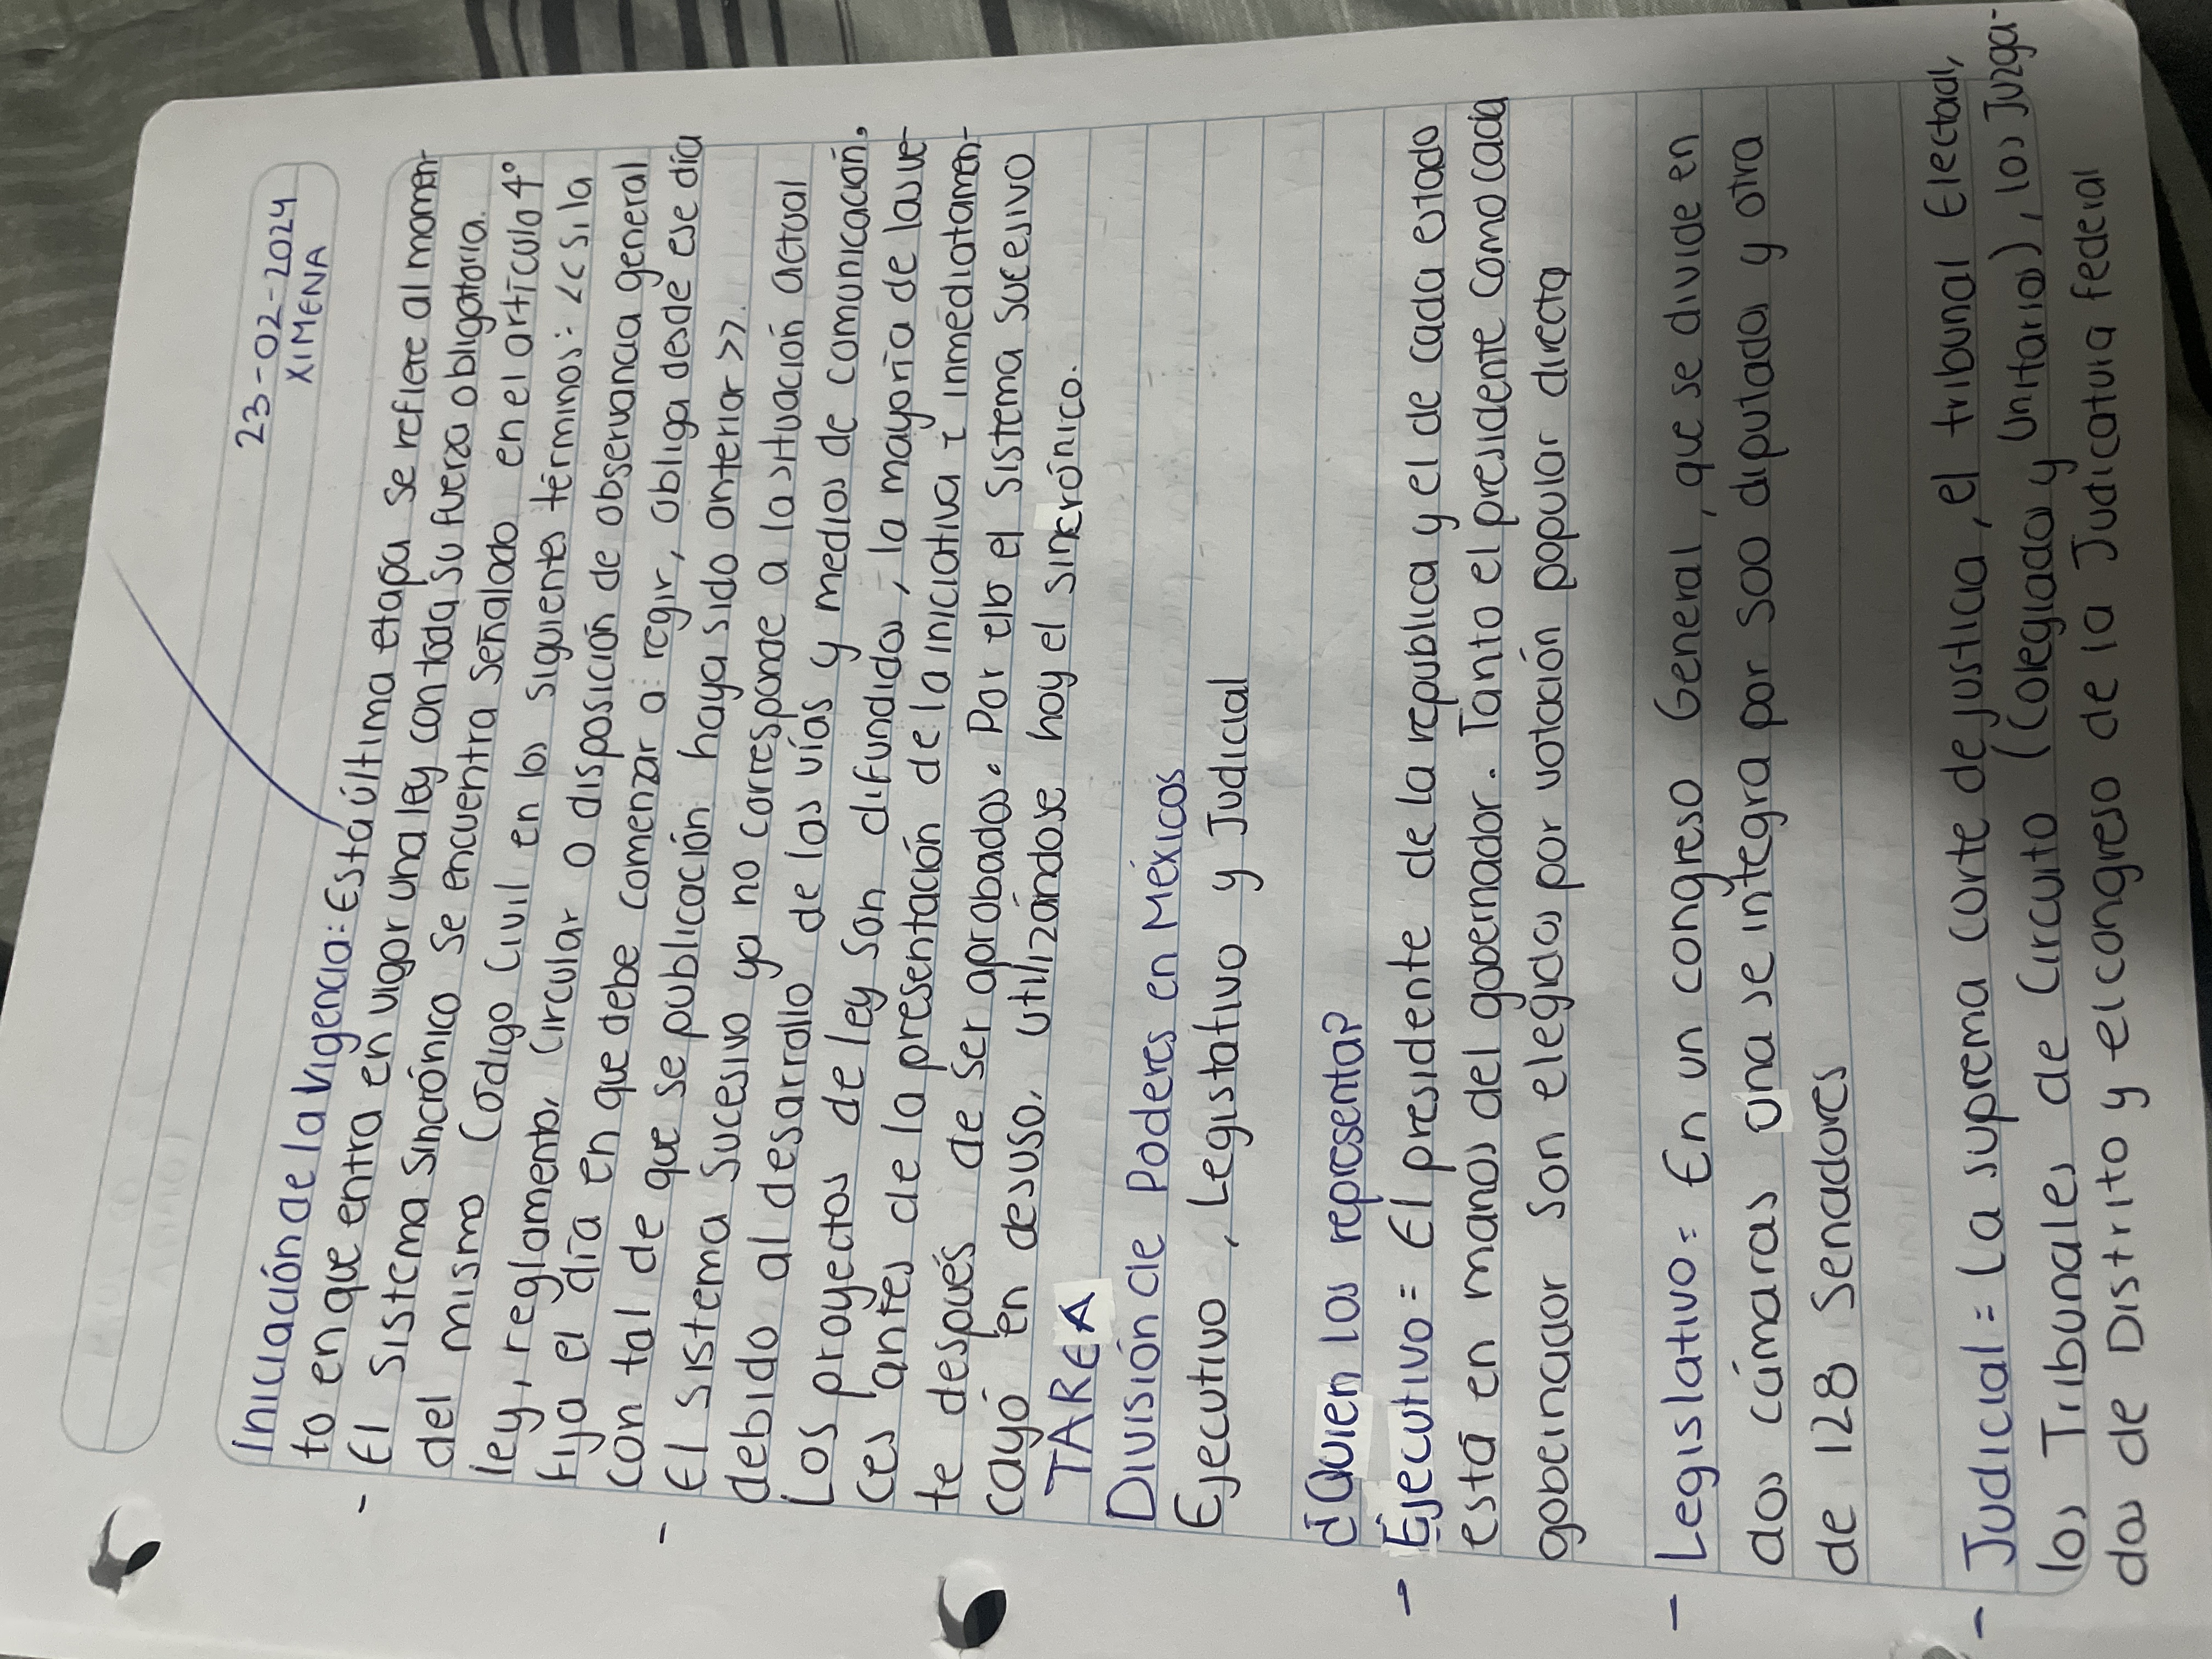 23-02-2024
XIMENA
Iniciación de la Vigencia: Está última etapa se refiere al momen-
to en que entra en vigor una ley con toda su fuerza obligatoria.
- El sistema sincrónico se encuentra señalado en el artículo 4°
del mismo Código Civil en los siguientes términos: <<si la
ley, reglamento, circular o disposición de observancia general
fija el día en que debe comenzar a regir, obliga desde ese día
con tal de que se publicación haya sido anterior>>.
- El sistema sucesivo ya no corresponde a la situación actual
debido al desarrollo de las vías y medios de comunicación.
Los proyectos de ley son difundidos, la mayoría de las ve-
ces antes de la presentación de la iniciativa e inmediatamen-
te después de ser aprobados. Por ello el sistema sucesivo
cayó en desuso, utilizándose hoy el sincrónico.
TAREA
División de Poderes en Méxicos
Ejecutivo, Legistativo y Judicial
¿Quien los representa?
- Ejecutivo= El presidente de la republica y el de cada estado
está en manos del gobernador. Tanto el presidente como cada
gobernador son elegidos por votación popular directa
- Legislativo= En un congreso General, que se divide en
dos cámaras una se integra por 500 diputados y otra
de 128 Senadores
- Judicial= La suprema corte de justicia, el tribunal Electoal,
los Tribunales de Circuito (Colegiado y Unitario), los Juzga-
dos de Distrito y el congreso de la Judicatura federal